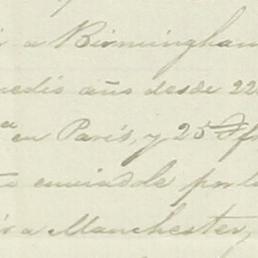 a Birmingham
medio año desde 22
en Paris, y 25
enviadole por
a Manchester,